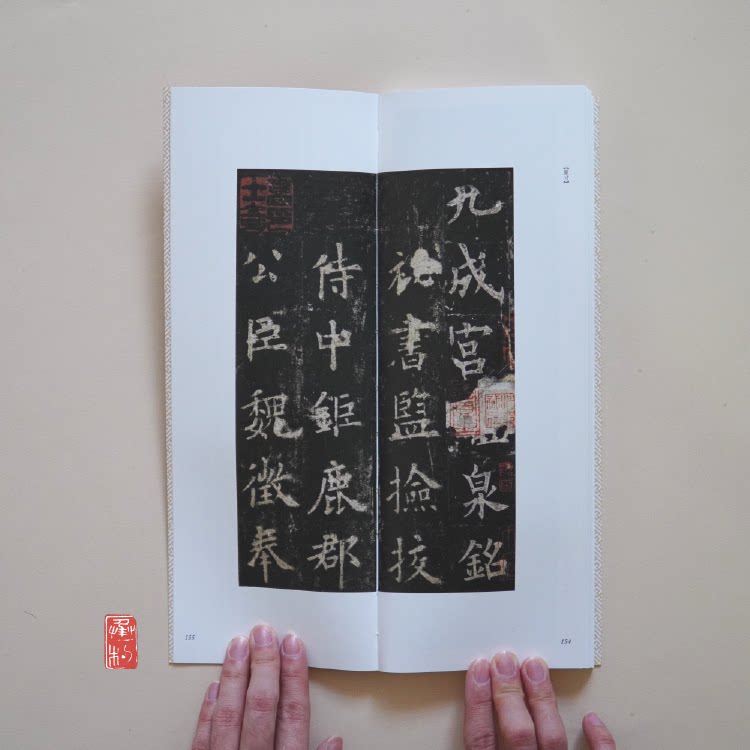 九成宮泉銘
祕書監撿挍
侍中鉅鹿郡
公臣魏徵奉
154
155